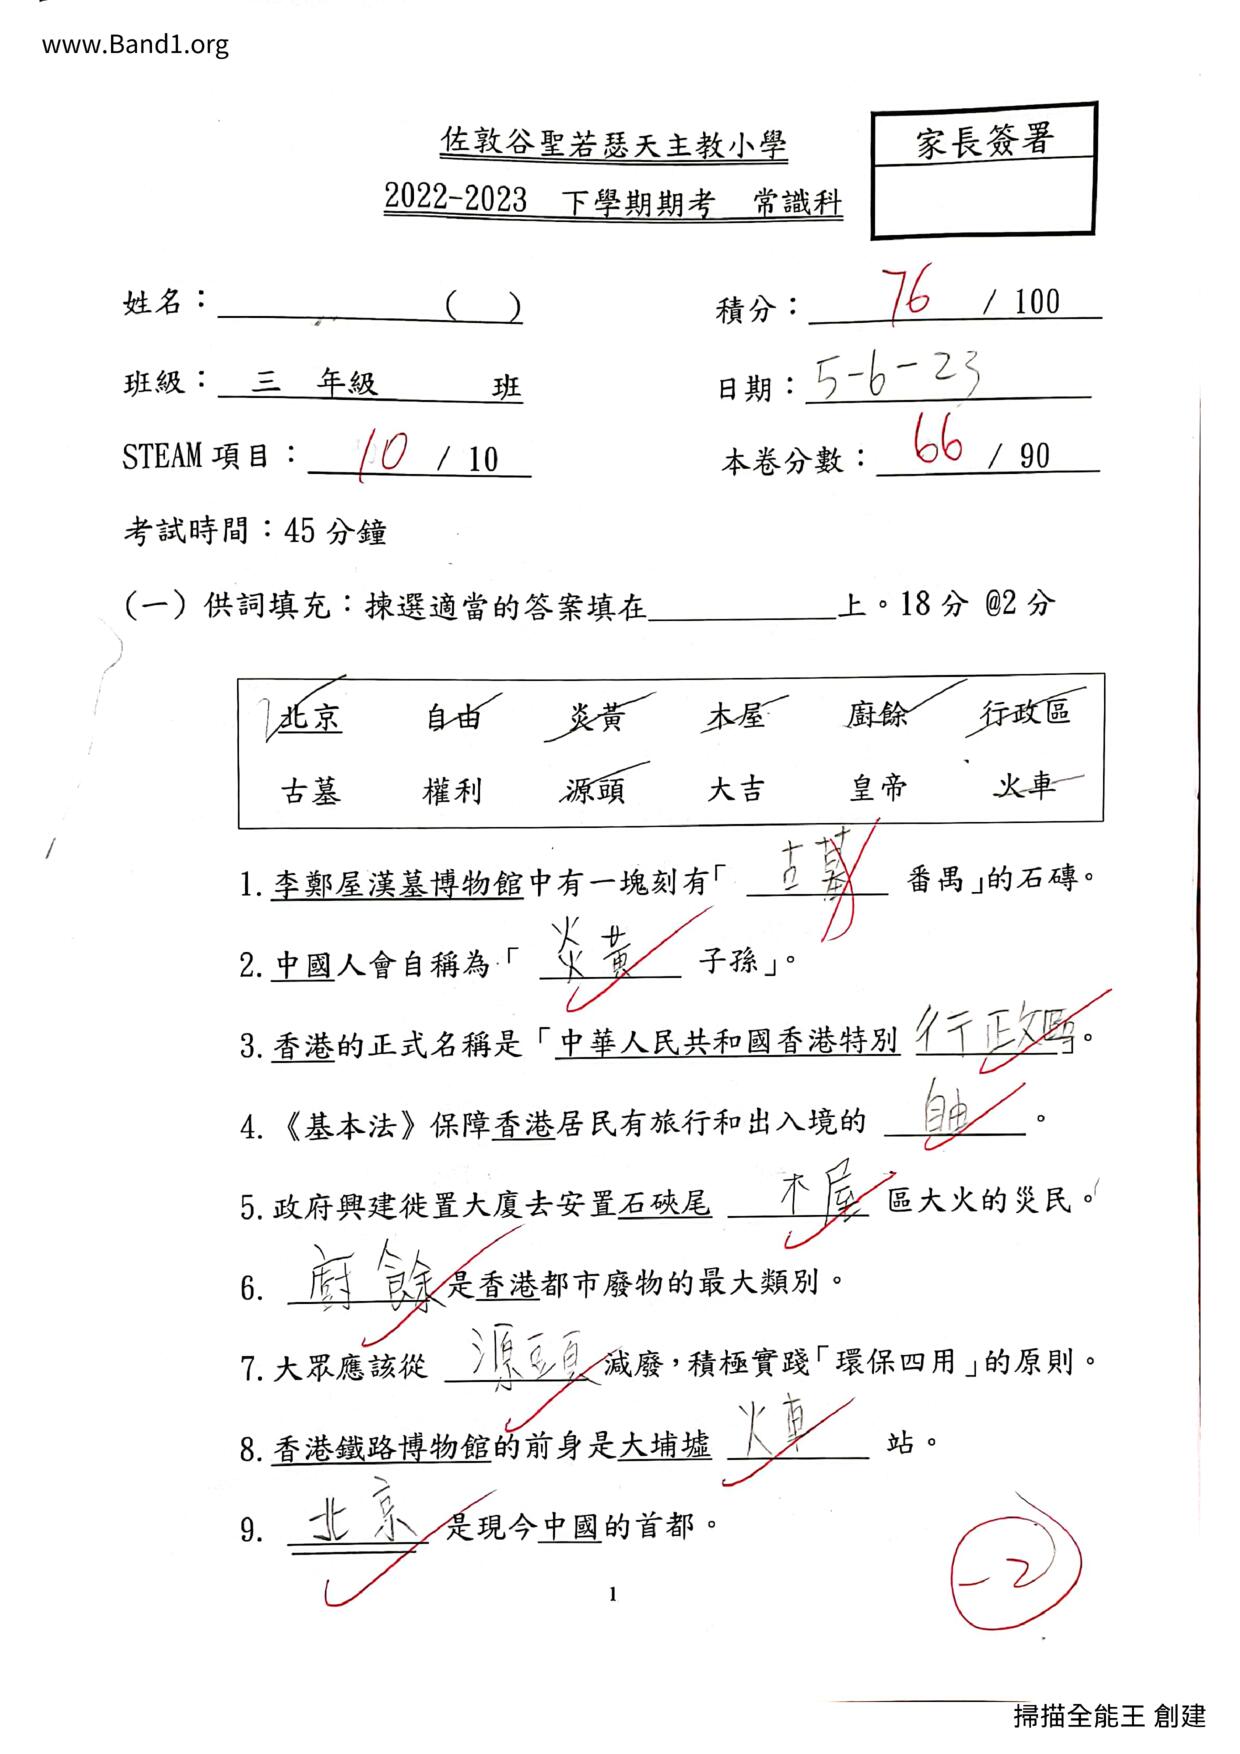 www.Band1.org
佐敦谷聖若瑟天主教小學
家長簽署
2022-2023 下學期期考 常識科
姓名：( )
積分：76 / 100
班級：三 年級 班
日期：5-6-23
STEAM 項目：10 / 10
本卷分數：66 / 90
考試時間：45 分鐘
（一）供詞填充：揀選適當的答案填在__________上。18 分 @2 分
北京 自由 炎黃 木屋 廚餘 行政區
古墓 權利 源頭 大吉 皇帝 火車
1. 李鄭屋漢墓博物館中有一塊刻有「 古墓 番禺」的石磚。
2. 中國人會自稱為「 炎黃 子孫」。
3. 香港的正式名稱是「中華人民共和國香港特別 行政區」。
4.《基本法》保障香港居民有旅行和出入境的 自由 。
5. 政府興建徙置大廈去安置石硤尾 木屋 區大火的災民。
6. 廚餘 是香港都市廢物的最大類別。
7. 大眾應該從 源頭 減廢，積極實踐「環保四用」的原則。
8. 香港鐵路博物館的前身是大埔墟 火車 站。
9. 北京 是現今中國的首都。
-2
1
掃描全能王 創建